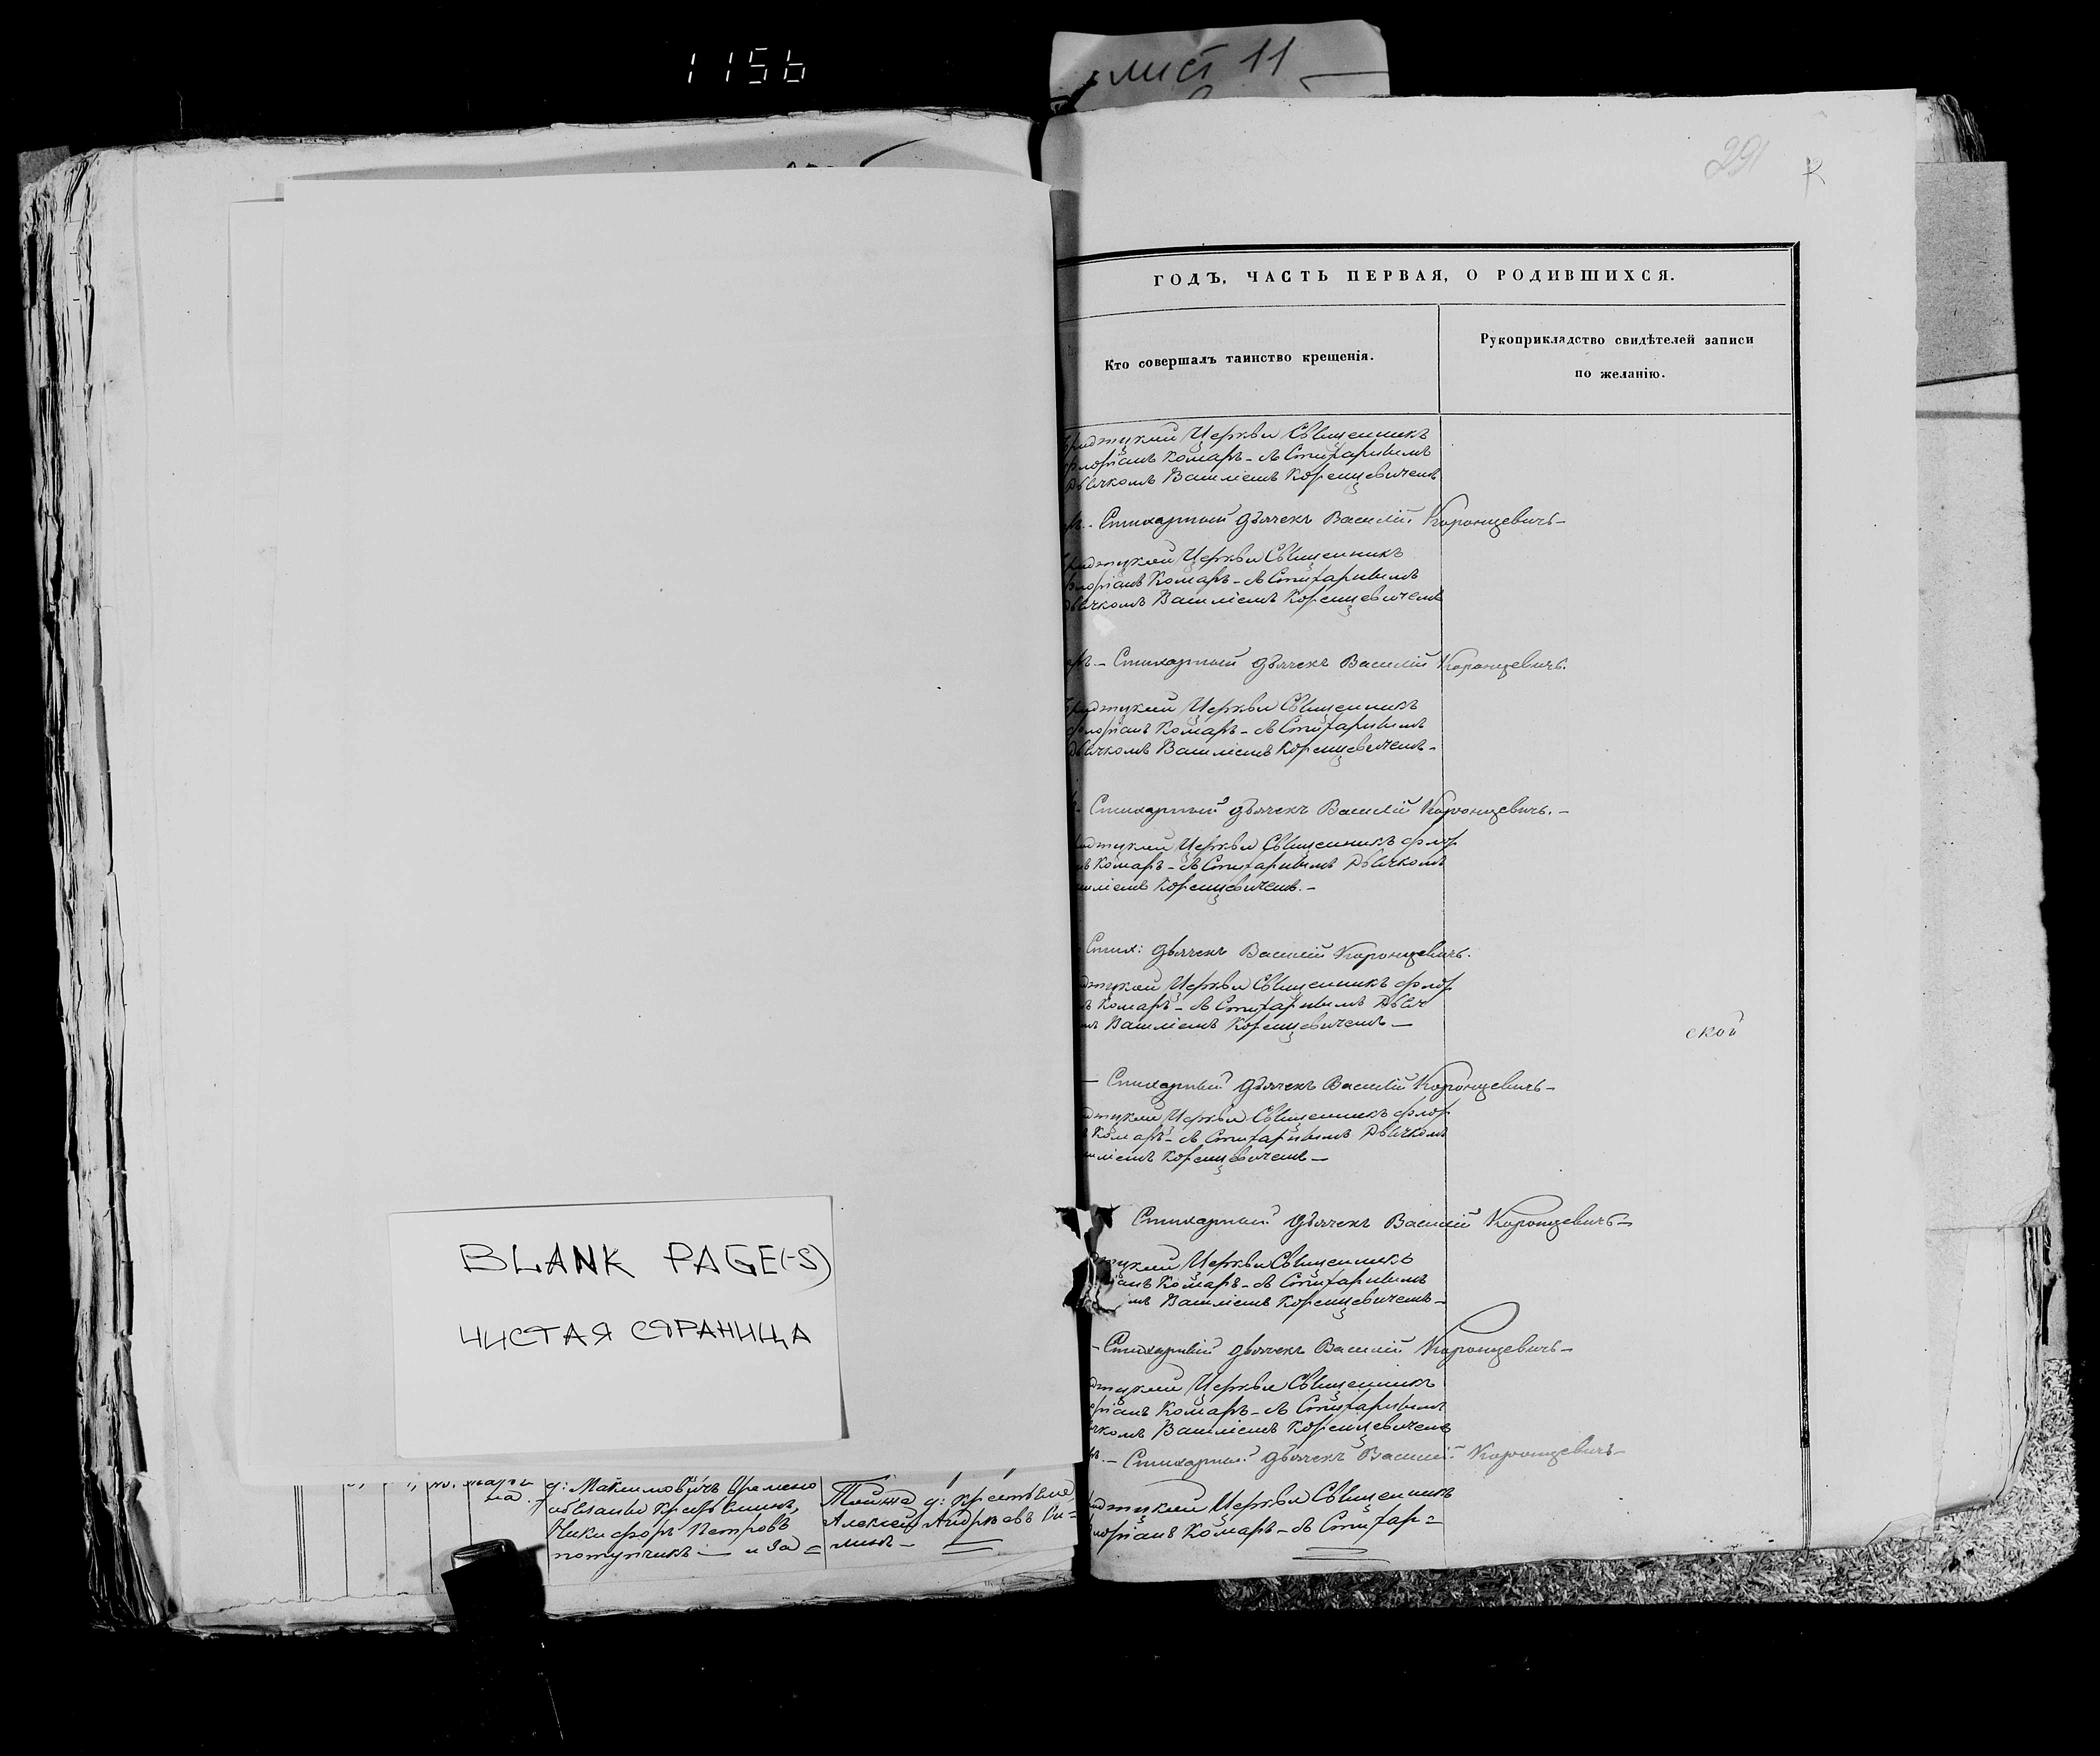 1156
лист 11
291
К
ГОДЪ, ЧАСТЬ ПЕРВАЯ, О РОДИВШИХСЯ.
Кто совершалъ таинство крещенія.
Рукоприкладство свидѣтелей записи
по желанію.
Церкви Священникъ
Комаръ - съ Стихарнымъ
Василіемъ Коренцевичемъ
Стихарный дьячекъ Василій Коронцевичъ-
Церкви Священникъ
Комаръ - съ Стихарнымъ
Василіемъ Коренцевичемъ
- Стихарный дьячекъ Василій Коронцевичъ.
Церкви Священникъ
Комаръ - съ Стихарнымъ
Василіемъ Коренцевичемъ-
- Стихарный дьячекъ Василій Коронцевичъ.-
Церкви Священникъ Флор
Комаръ - съ Стихарнымъ Дьячкомъ
Коренцевичемъ.-
Стих: дьячекъ Василій Коронцевичъ.
Церкви Священникъ Флор
Комаръ - съ Стихарнымъ Дьяч
Василіемъ Коренцевичемъ —
ской
— Стихарный дьячекъ Василій Коронцевичъ-
Церкви Священникъ Флор
Комаръ - съ Стихарнымъ Дьячкомъ
Коренцевичемъ —
Стихарный дьячекъ Василій Коронцевичъ-
Церкви Священникъ
Комаръ - съ Стихарнымъ
Василіемъ Коренцевичемъ-
- Стихарный дьячекъ Василій Коронцевичъ-
Церкви Священникъ
Комаръ - съ Стихарнымъ
Василіемъ Коренцевичемъ
- Стихарный дьячекъ Василій Коронцевичъ-
Церкви Священникъ
Комаръ - съ Стихар=
BLANK PAGE(-S)
ЧИСТАЯ СТРАНИЦА
д: Максимовичъ Временно
Никифоръ Петровъ
Алексей Андреевъ